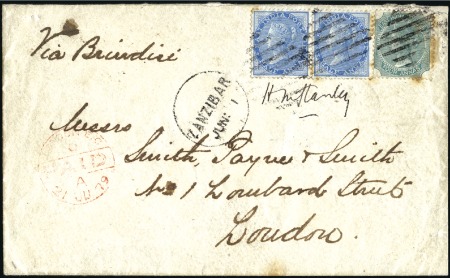 Via Brindisi
ZANZIBAR
JUNE 1
H M Stanley
Messrs
Smith, Payne & Smith
No 1 Lombard Street
London